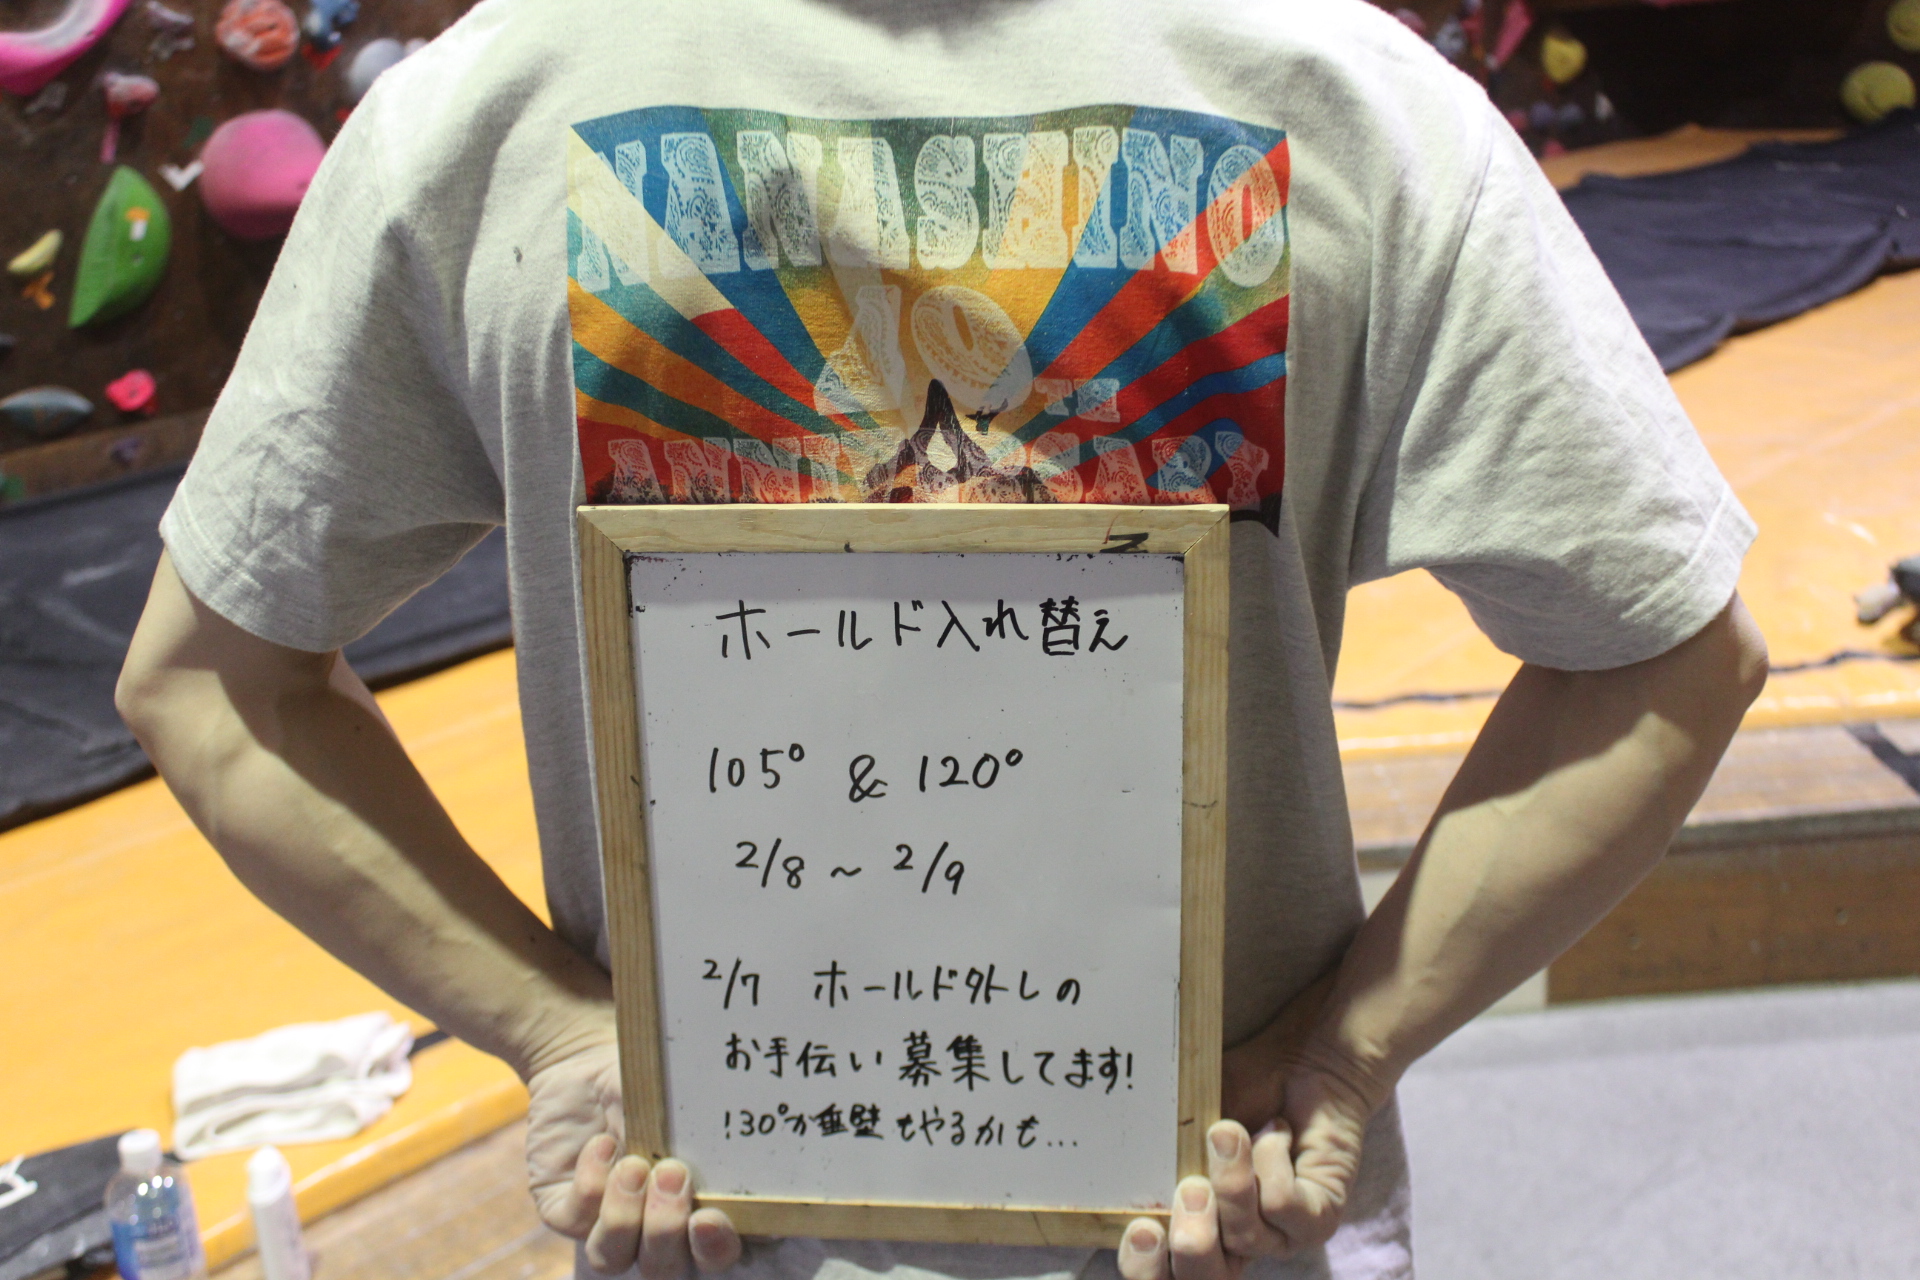 NANASHINO
10TH
ANNIVERSARY
ホールド入れ替え
105° & 120°
2/8 ~ 2/9
2/7 ホールド外しの
お手伝い募集してます!
130°か垂壁もやるかも...